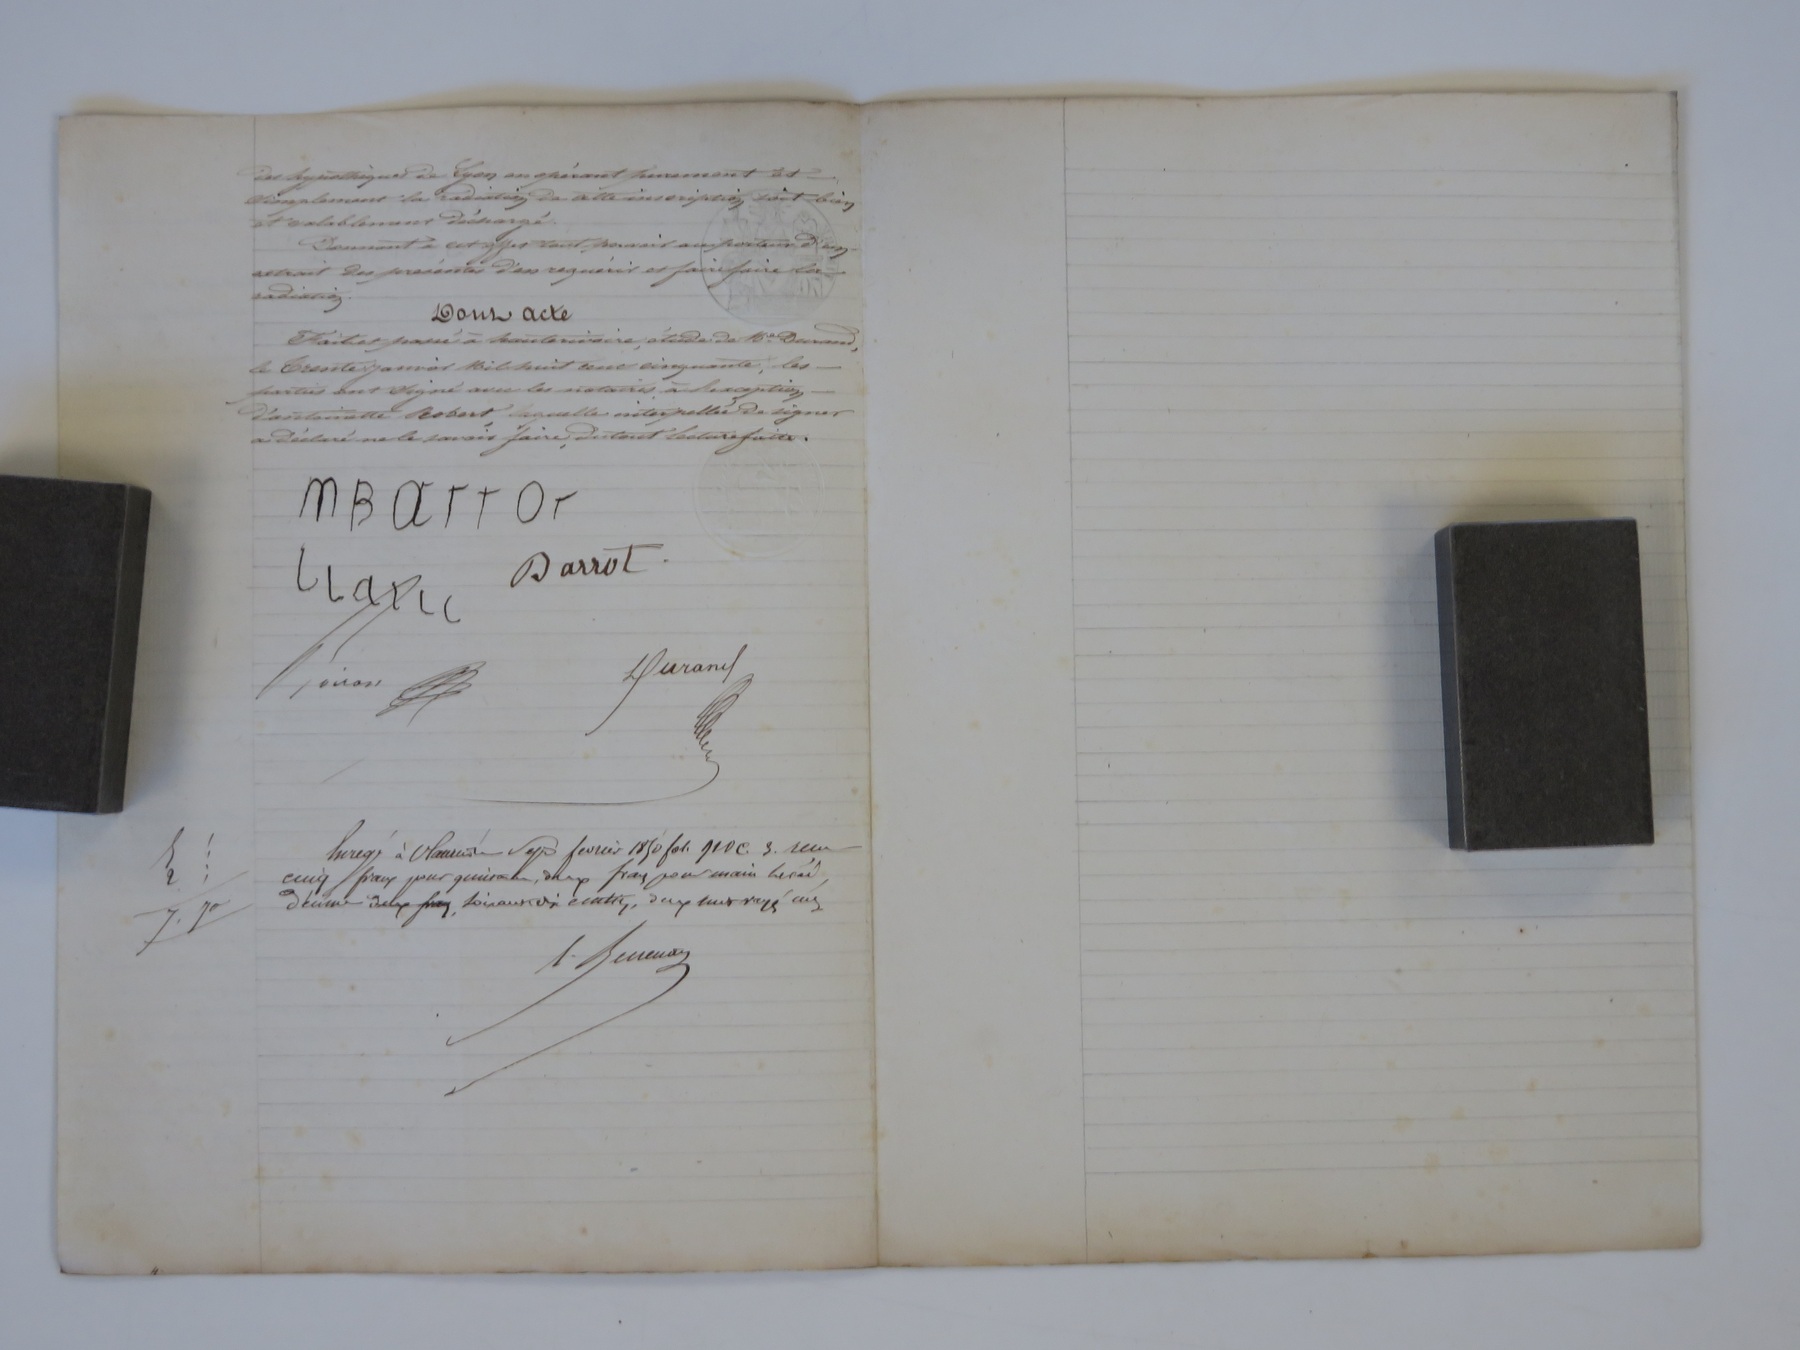 des hypothèques de Lyon en opérant purement et
simplement la radiation de cette inscription soit bien
et valablement déchargé.
Donnant à cet effet tout pouvoir au porteur d'un
extrait des présentes d'en requérir et faire faire la
radiation.
Dont acte
Fait et passé à hauterivoire, étude de Me Durand,
le trente janvier Mil huit cent cinquante, les
parties ont signé avec les notaires, à l'exception
d'antoinette Robert, laquelle interpellée de signer
a déclaré ne le savoir faire, du tout lecture faite.
M BarrOr
Barrot.
Durand
Enregé à février 1850 fol. C. 3. reçu
cinq francs pour quittance, deux francs pour main levée,
décime
5
2
7. 70